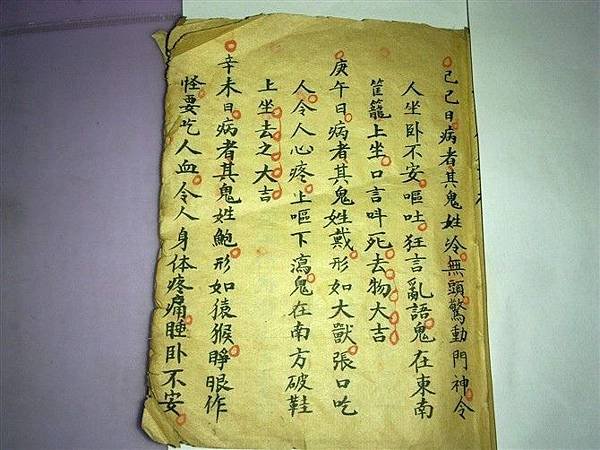 己己日病者其鬼姓冷無頭驚動門神令
人坐卧不安嘔吐狂言亂語鬼在東南
筐籠上坐口言呌死去物大吉
庚午日病者其鬼姓戴形如大獸張口吃
人令人心疼上嘔下瀉鬼在南方破鞋
上坐去之大吉
辛未日病者其鬼姓鮑形如猿猴睜眼作
怪要吃人血令人身体疼痛腄卧不安